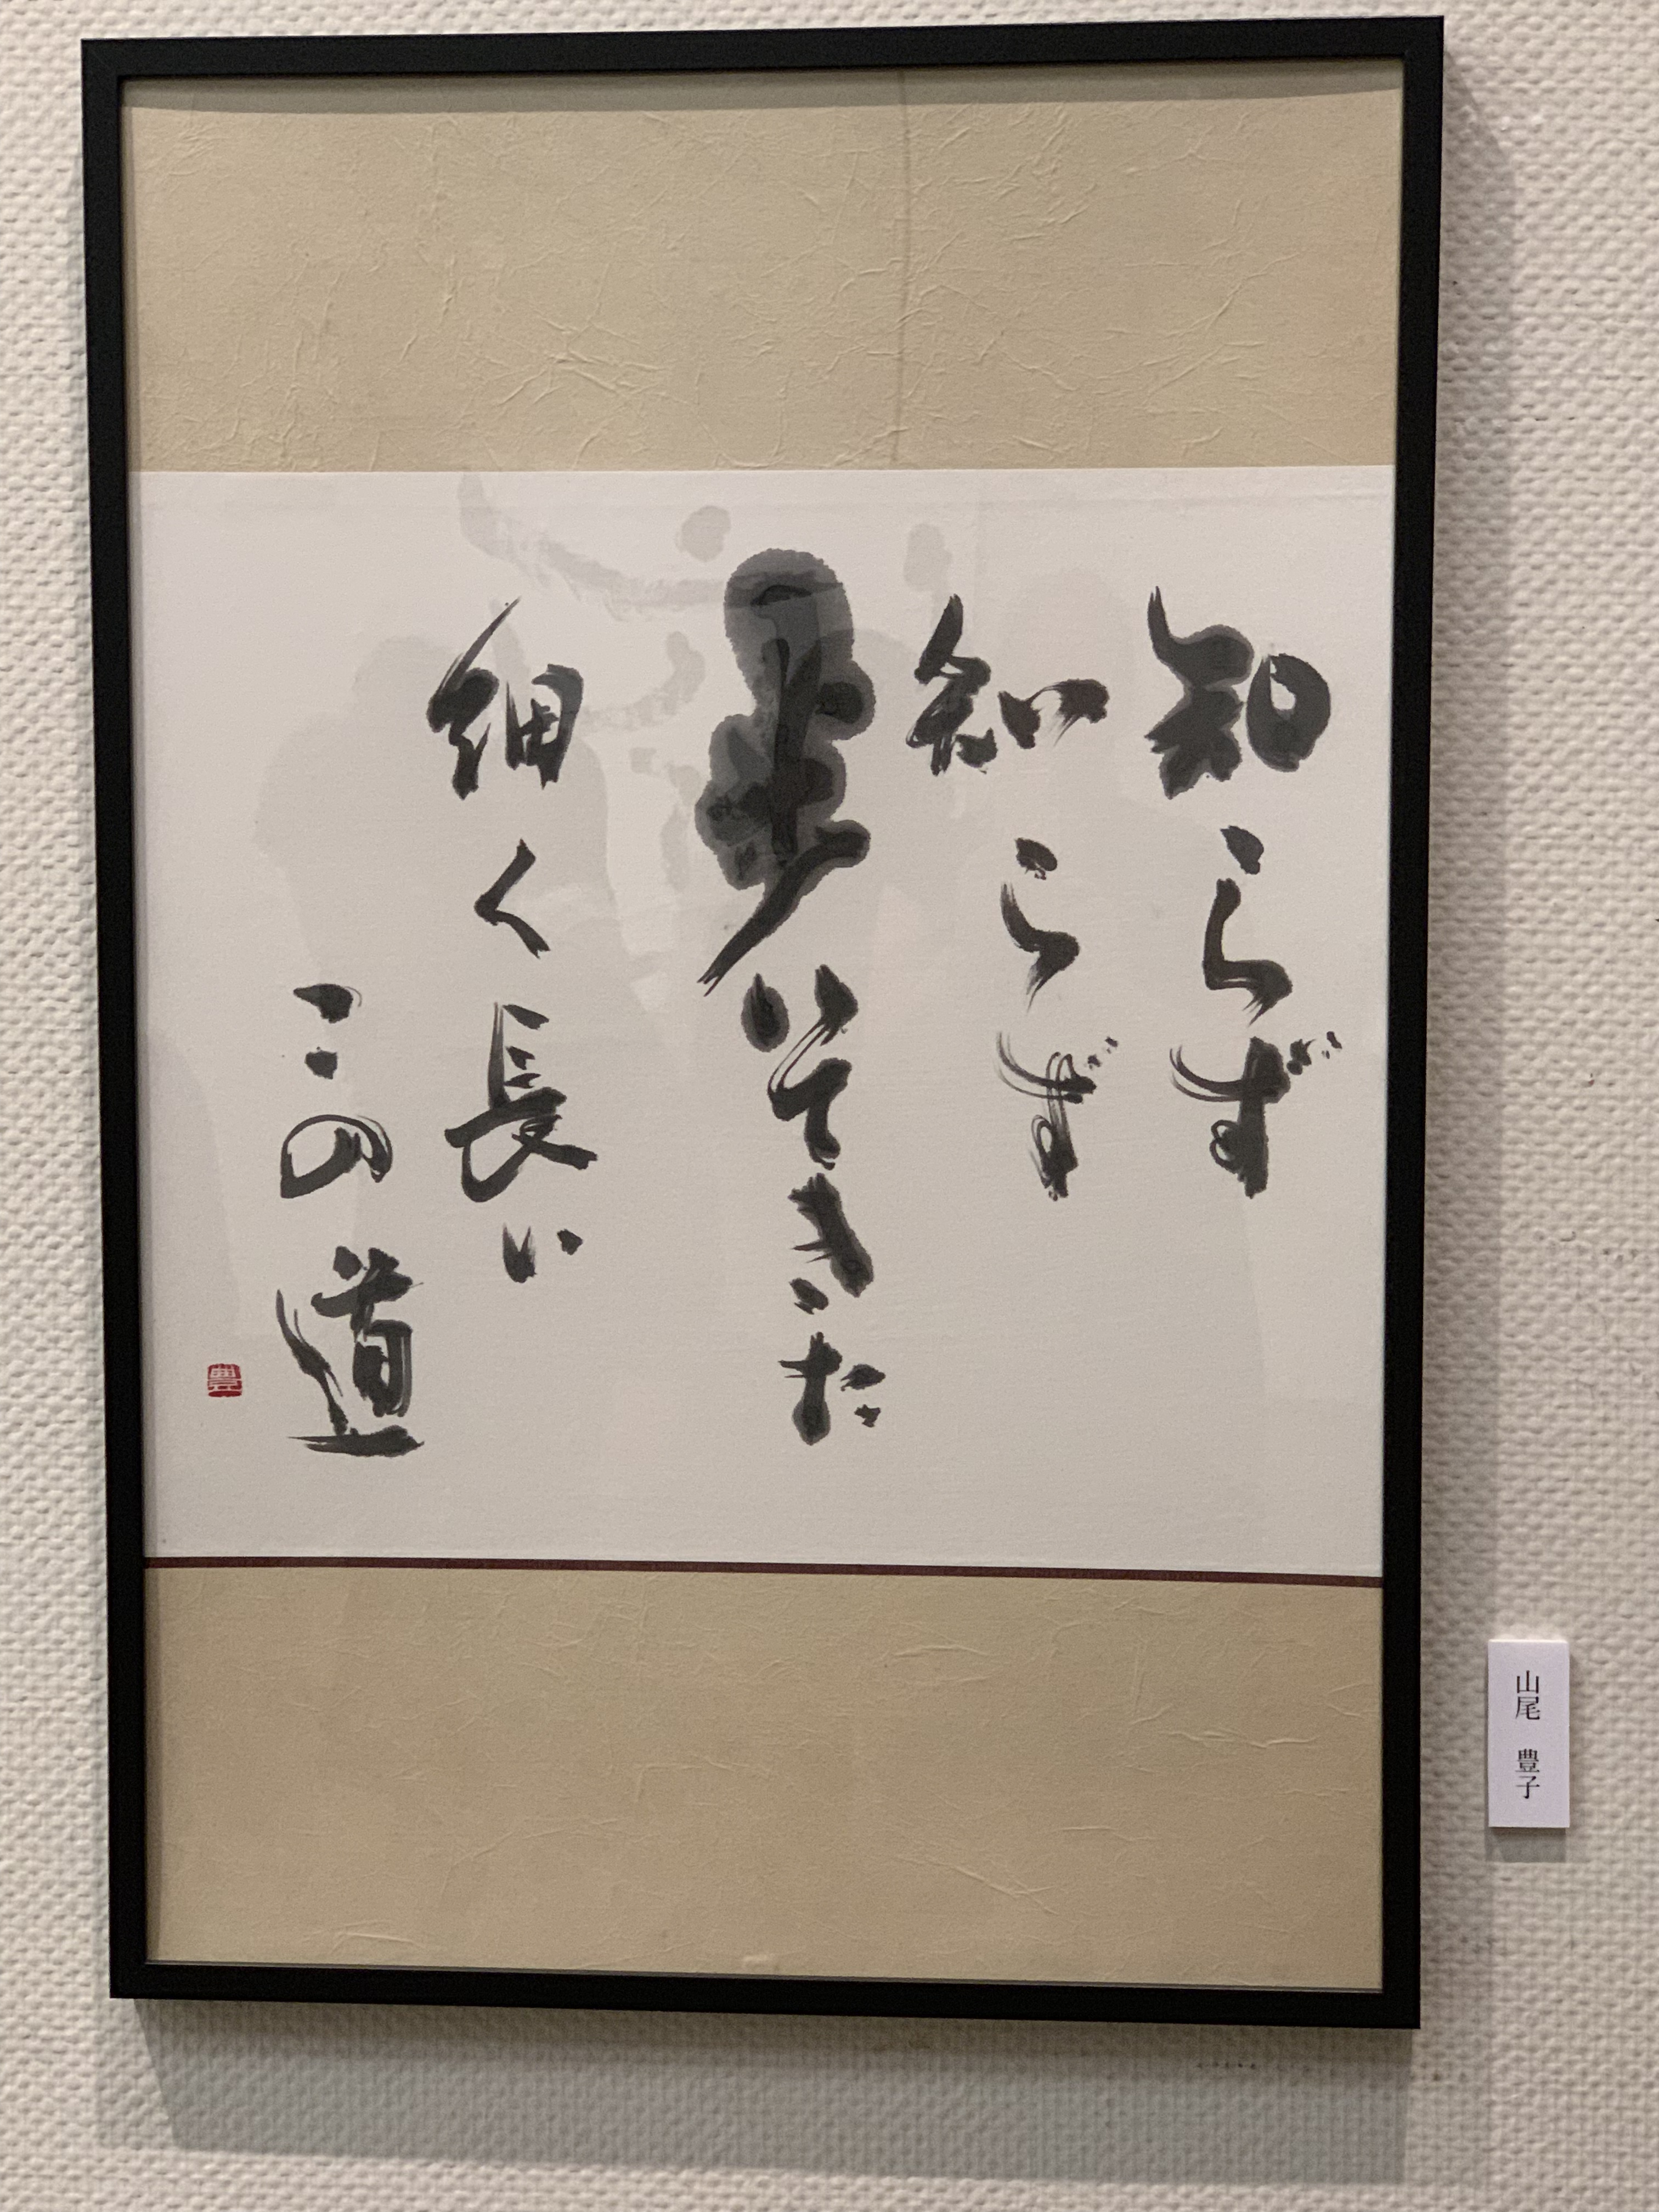 知らず
知らず
歩いてきた
細く長い
この道
豊
山尾 豊子